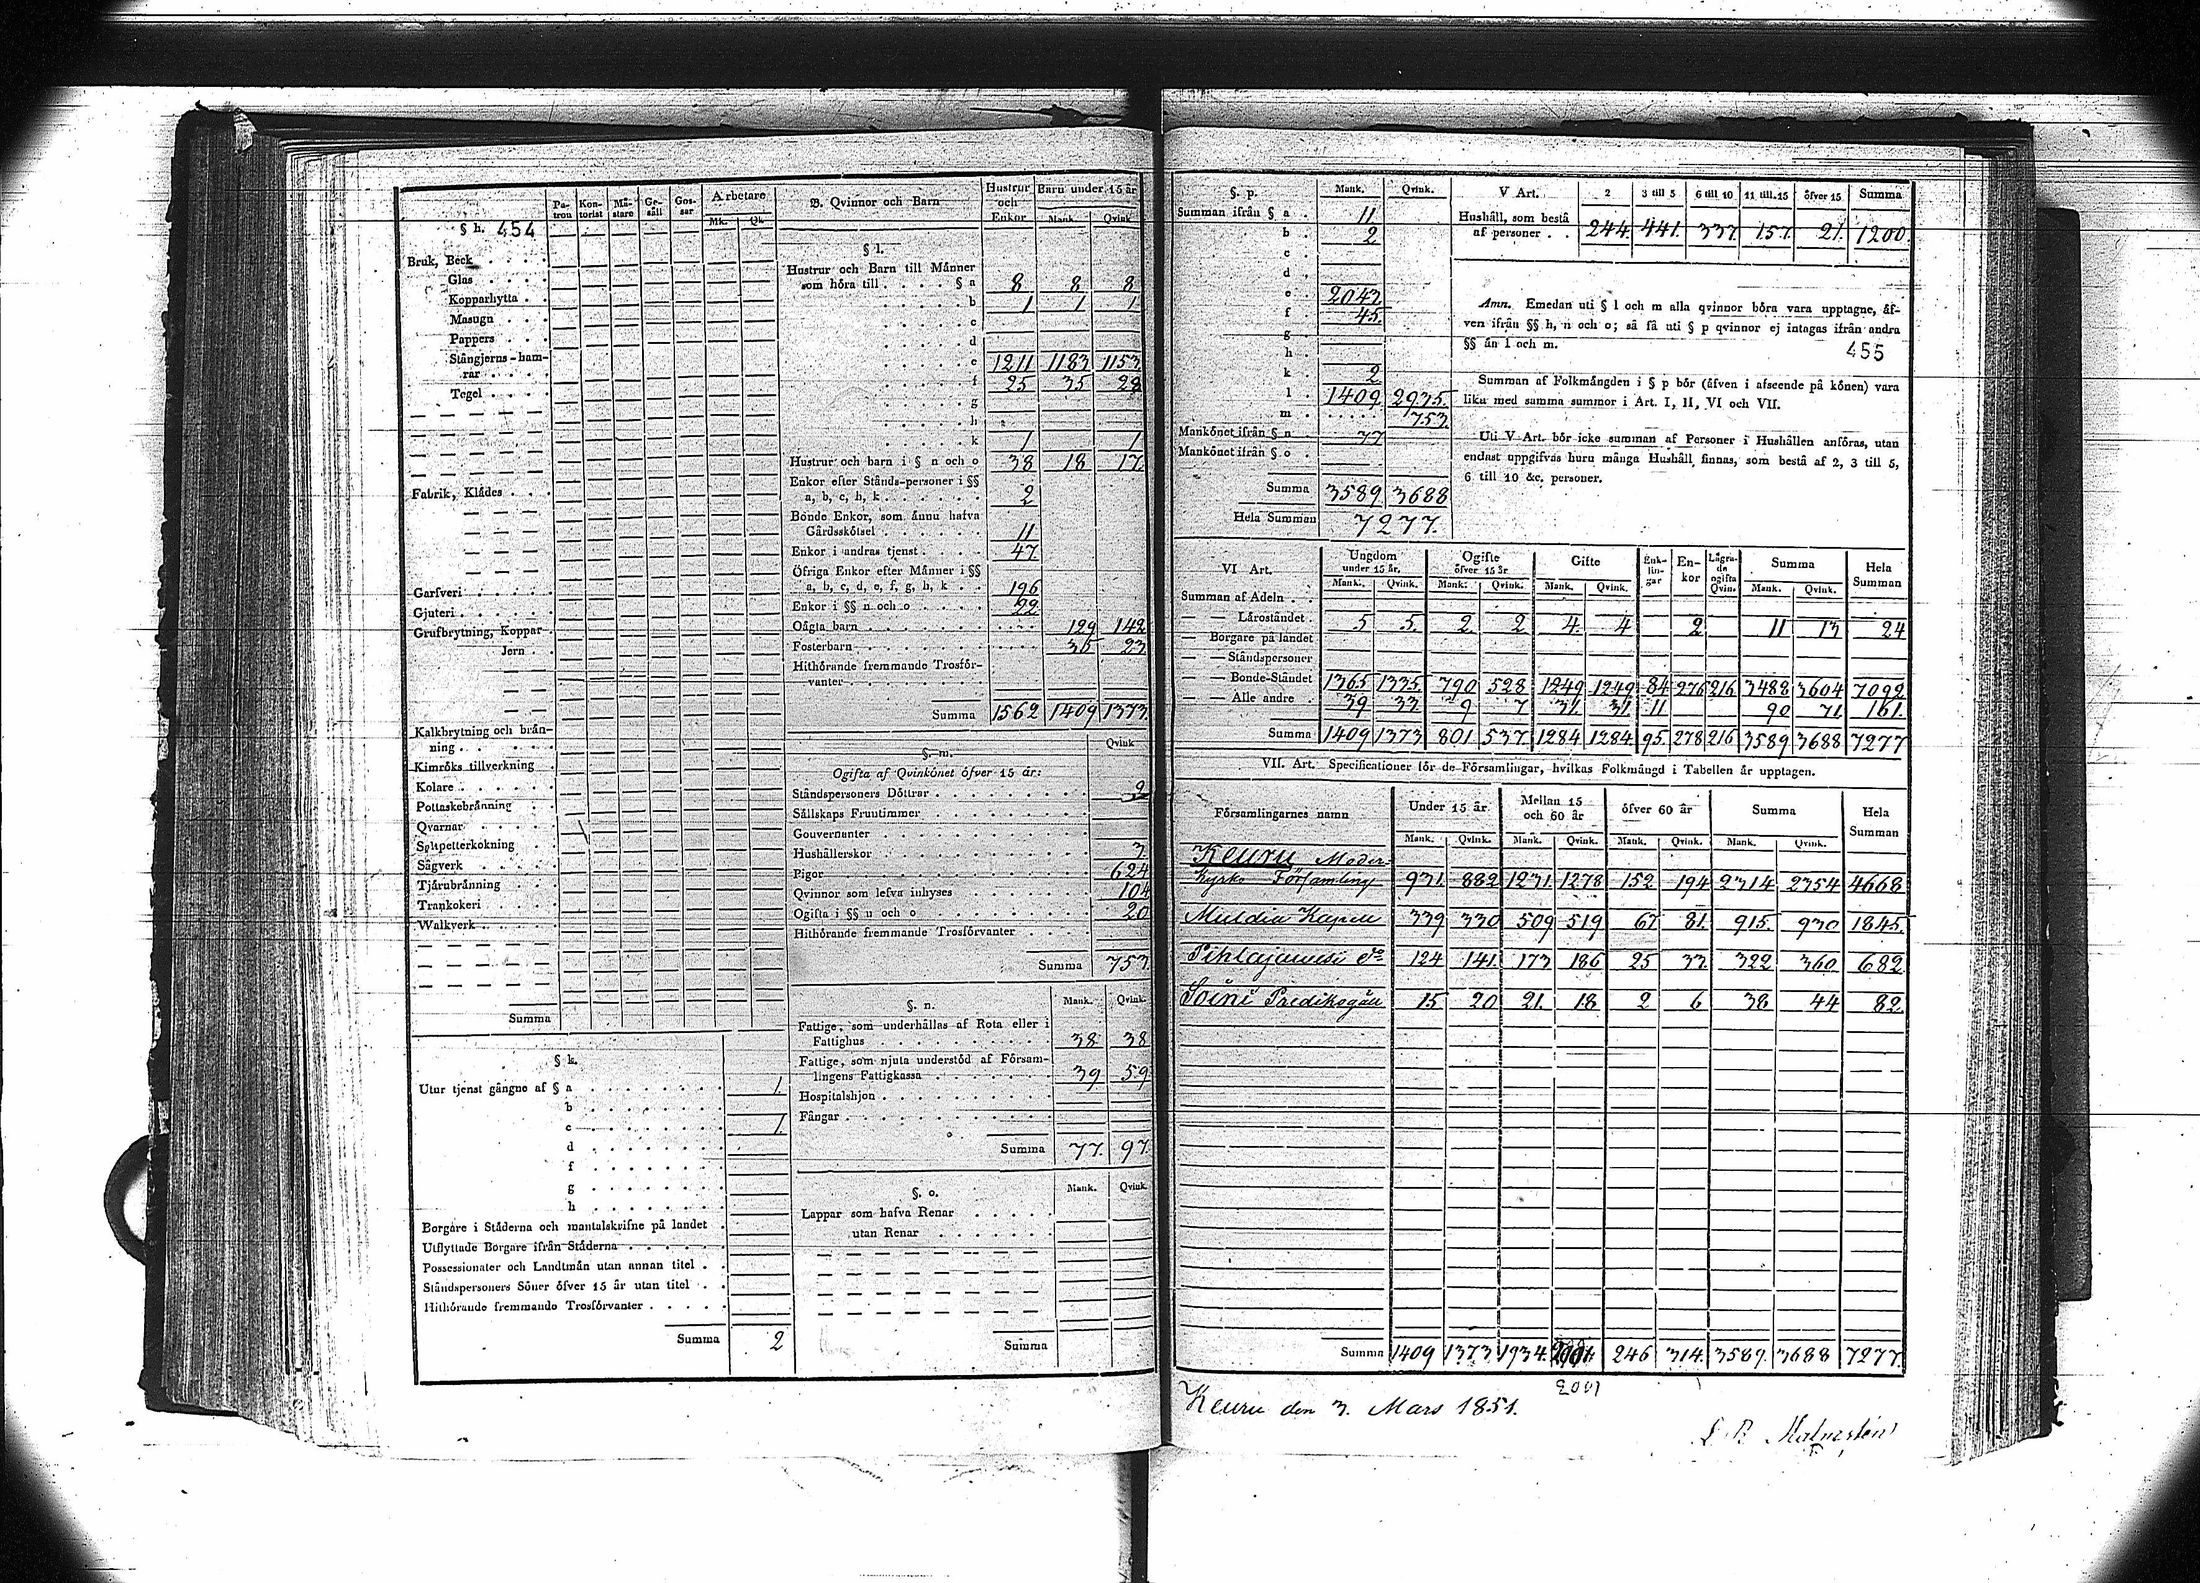 § h. 454
Pa-tron Kon-torist Mä-stare Ge-säll Gos-sar Arbetare Mk. Qk.
Bruk, Beck
Glas
Kopparhytta
Masugn
Pappers
Stångjerns-ham-
rar
Tegel
Fabrik, Klädes
Garfveri
Gjuteri
Grufbrytning, Koppar-
Jern
Kalkbrytning och brän-
ning
Kimröks tillverkning
Kolare
Pottaskebränning
Qvarnar
Saltpetterkokning
Sågverk
Tjärubränning
Trankokeri
Walkverk
Summa
§ k.
Utur tjenst gångne af § a 1.
b
c 1.
d
f
g
h
Borgare i Städerna och mantalskrifne på landet
Utflyttade Borgare ifrån Städerna
Possessionater och Landtmän utan annan titel
Ståndspersoners Söner öfver 15 år utan titel
Hithörande fremmande Trosförvanter
Summa 2
B. Qvinnor och Barn Hustrur och Enkor Barn under 15 år Mank. Qvink.
§ l.
Hustrur och Barn till Männer
som höra till § a 8 8 8
b 1 1 1
c
d
e 1211 1183 1153
f 25 35 29
g
h
k 1 1
Hustrur och barn i § n och o 38 18 17.
Enkor efter Stånds-personer i §§
a, b, c, h, k 2
Bonde Enkor, som ännu hafva
Gårdsskötsel 11
Enkor i andras tjenst 47
Öfriga Enkor efter Männer i §§
a, b, c, d, e, f, g, h, k 196
Enkor i §§ n och o 22
Oägta barn 129 142
Fosterbarn 35 23
Hithörande fremmande Trosför-
vanter
Summa 1562 1409 1373.
§. m. Qvink
Ogifta af Qvinkönet öfver 15 år:
Ståndspersoners Döttrar 2
Sällskaps Fruntimmer
Gouvernanter
Hushållerskor 3.
Pigor 624
Qvinnor som lefva inhyses 104
Ogifta i §§ n och o 20
Hithörande fremmande Trosförvanter
Summa 753.
§. n. Mank. Qvink.
Fattige, som underhållas af Rota eller i
Fattighus 38 38
Fattige, som njuta understöd af Försam-
lingens Fattigkassa 39 59
Hospitalshjon
Fångar
Summa 77. 97.
§. o. Mank. Qvink.
Lappar som hafva Renar
utan Renar
Summa
§. p. Mank. Qvink.
Summan ifrån § a 11
b 2
c
d
e 2043
f 45.
g
h
k 2
l 1409 2935.
m 753.
Mankönet ifrån § n 77
Mankönet ifrån § o
Summa 3589 3688
Hela Summan 7277.
V Art. 2 3 till 5 6 till 10 11 till 15 öfver 15 Summa
Hushåll, som bestå
af personer 244. 441. 337. 157. 21. 1200.
Anm. Emedan uti § l och m alla qvinnor böra vara upptagne, äf-
ven ifrån §§ h, n och o; så få uti § p qvinnor ej intagas ifrån andra
§§ än l och m. 455
Summan af Folkmängden i § p bör (äfven i afseende på könen) vara
lika med samma summor i Art. I, II, VI och VII.
Uti V Art. bör icke summan af Personer i Hushållen anföras, utan
endast uppgifvas huru många Hushåll finnas, som bestå af 2, 3 till 5,
6 till 10 &c. personer.
VI Art. Ungdom under 15 år. Ogifte öfver 15 år Gifte Enk-lin-gar En-kor Lägra-de ogifta Qvin. Summa Hela Summan
Mank. Qvink. Mank. Qvink. Mank. Qvink. Mank. Qvink.
Summan af Adeln
— — Läroståndet 5 5. 2. 2 4. 4 2 11 13 24
— Borgare på landet
— — Ståndspersoner
— — Bonde-Ståndet 1365 1335. 790 528 1249 1249 84 276 216 3488 3604 7092
— — Alle andre 39 33 9 7 31. 31. 11 90 71. 161.
Summa 1409 1373 801. 537. 1284 1284 95. 278 216 3589 3688 7277
VII. Art. Specificationer för de Församlingar, hvilkas Folkmängd i Tabellen är upptagen.
Församlingarnes namn Under 15 år. Mellan 15 och 60 år öfver 60 år Summa Hela Summan
Mank. Qvink. Mank. Qvink. Mank. Qvink. Mank. Qvink.
Keuru Moder-
kyrko Församling 931. 882 1231. 1278 152 194 2314 2354 4668
Multia Kapell 339 330 509 519 67. 81. 915. 930 1845.
Pihlajavesi do 124 141. 173 186 25 33. 322 360 682
Soini Predikogäll 15 20 21. 18 2 6 38 44 82.
Summa 1409 1373 1934. 2001 246 314. 3589. 3688 7277.
Keuru den 3. Mars 1851.
Malmstén